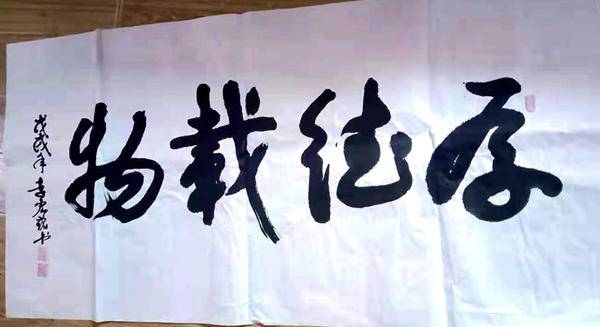 厚德载物
戊戌年 李
书